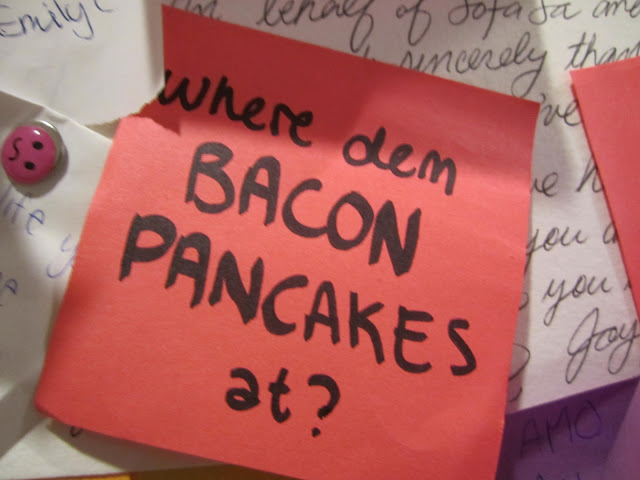 Emily
on behalf of Sofasa and
sincerely than
where dem
BACON
PANCAKES
at?
've
you a
you
Joy
AMO